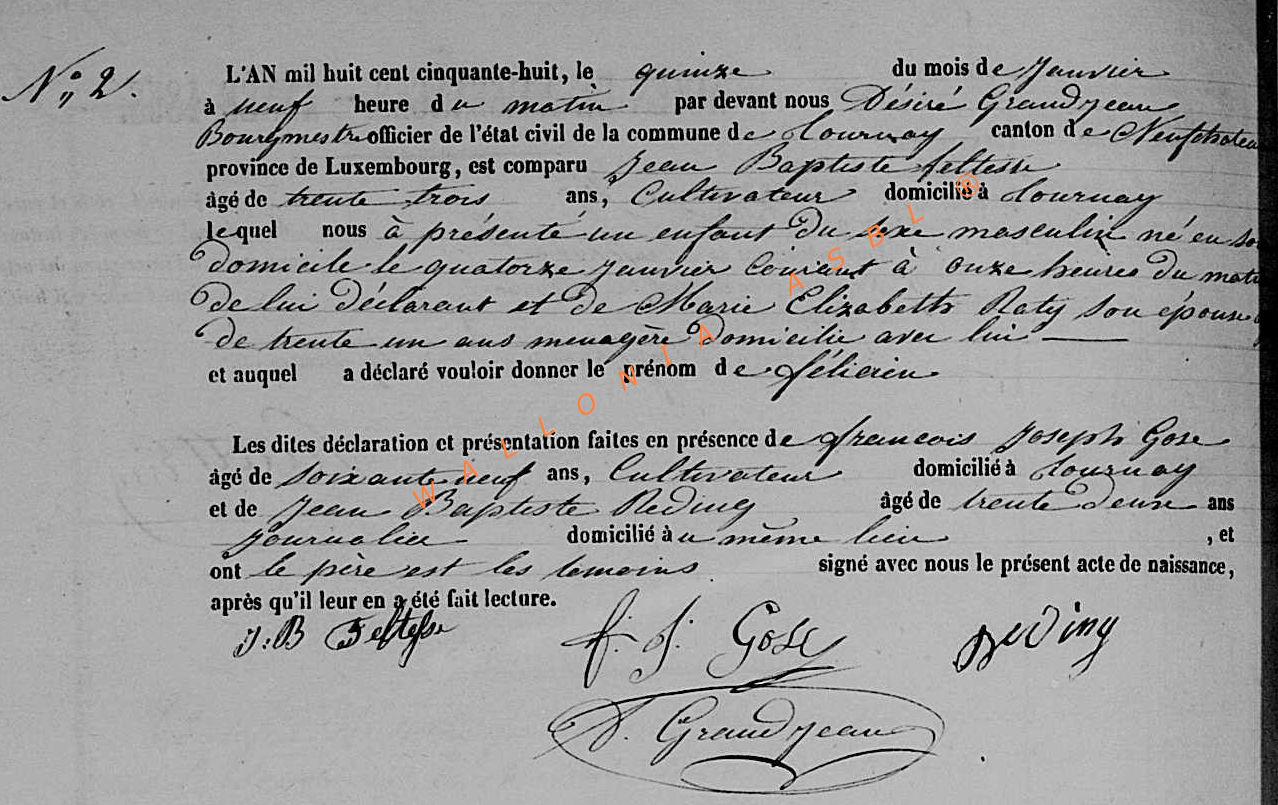 N° 2.
L'AN mil huit cent cinquante-huit, le quinze du mois de Janvier
à neuf heure du matin par devant nous Désiré Grandjean
Bourgmestre officier de l'état civil de la commune de Tournay canton de Neufchateau
province de Luxembourg, est comparu Jean Baptiste feltesse
âgé de trente trois ans, Cultivateur domicilié à Tournay
lequel nous à présenté un enfant du sexe masculin né en son
domicile le quatorze Janvier Courant à onze heures du matin
de lui déclarant et de Marie Elizabeth Raty son épouse
de trente un ans menagère domicilie avec lui
et auquel a déclaré vouloir donner le prénom de félicien
Les dites déclaration et présentation faites en présence de francois Joseph Gose
âgé de soixante neuf ans, Cultivateur domicilié à Tournay
et de Jean Baptiste Reding âgé de trente deux ans
Journalier domicilié au même lieu , et
ont le père est les temoins signé avec nous le présent acte de naissance,
après qu'il leur en a été fait lecture.
J: B Feltesse F. J. Gose Reding
D. Grandjean
WALLONIA ASBL ®